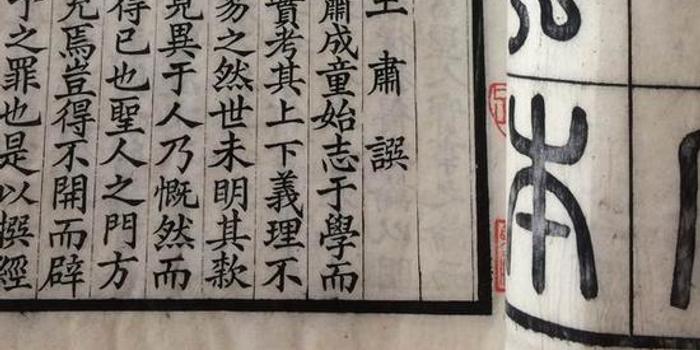 本
王肅譔
肅成童始志于學而
實考其上下義理不
易之然世未明其款
見異于人乃慨然而
得已也聖人之門方
充焉豈得不開而辟
予之罪也是以撰經